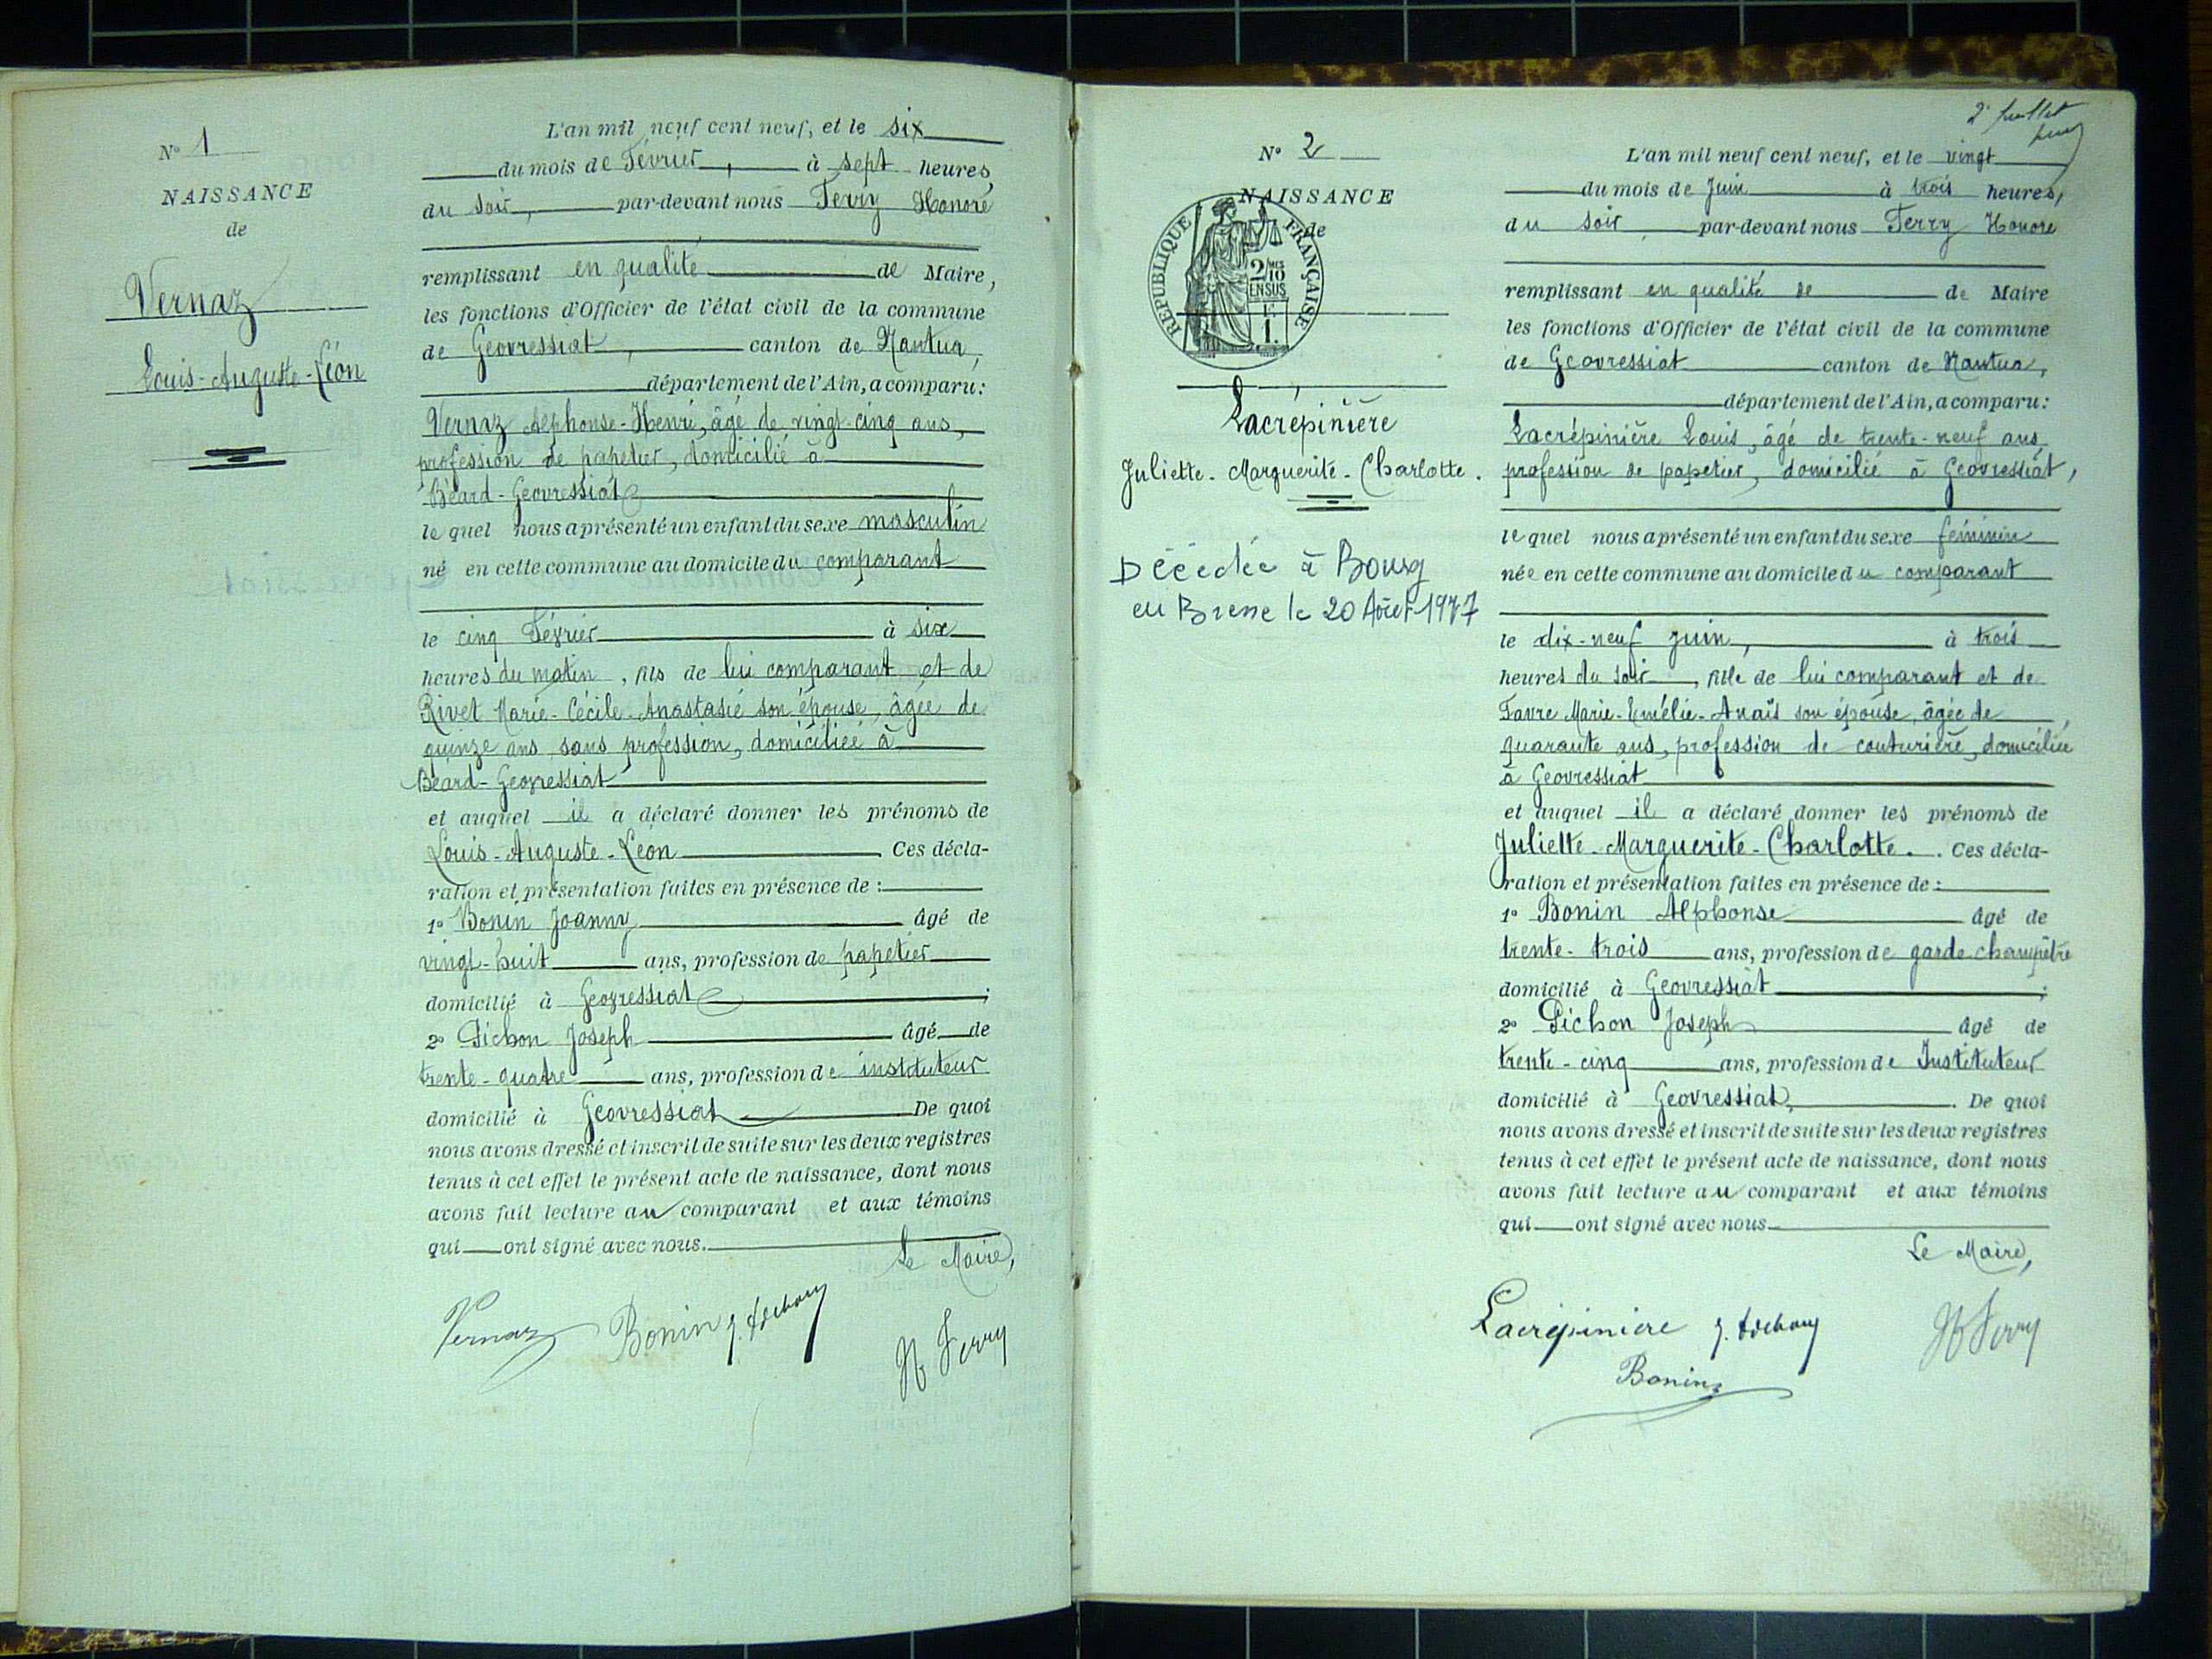 N° 1
NAISSANCE
de
Vernaz
Louis-Auguste-Léon
L'an mil neuf cent neuf, et le six
du mois de Février, à sept heures
du soir, par-devant nous Ferry Honoré
remplissant en qualité de Maire,
les fonctions d'Officier de l'état civil de la commune
de Geovressiat, canton de Nantua,
département de l'Ain, a comparu:
Vernaz Alphonse-Henri, âgé de vingt-cinq ans,
profession de papetier, domicilié à
Béard-Geovressiat
le quel nous a présenté un enfant du sexe masculin
né en cette commune au domicile du comparant
le cinq Février à six
heures du matin, fils de lui comparant et de
Rivet Marie-Cécile-Anastasie son épouse, âgée de
quinze ans, sans profession, domiciliée à
Béard-Geovressiat
et auquel il a déclaré donner les prénoms de
Louis-Auguste-Léon Ces décla-
ration et présentation faites en présence de:
1° Bonin Joanny âgé de
vingt-huit ans, profession de papetier
domicilié à Geovressiat;
2° Pichon Joseph âgé de
trente-quatre ans, profession de instituteur
domicilié à Geovressiat De quoi
nous avons dressé et inscrit de suite sur les deux registres
tenus à cet effet le présent acte de naissance, dont nous
avons fait lecture au comparant et aux témoins
qui ont signé avec nous.
Le Maire,
Vernaz Bonin J. Pichon
H Ferry
2e feuillet
N° 2
NAISSANCE
de
REPUBLIQUE FRANÇAISE
2/10 MES
EN SUS
1 F.
Lacrépinière
Juliette-Marguerite-Charlotte.
Décédée à Bourg
en Bresse le 20 Août 1977
L'an mil neuf cent neuf, et le vingt
du mois de Juin à trois heures,
du soir par-devant nous Ferry Honoré
remplissant en qualité de de Maire
les fonctions d'Officier de l'état civil de la commune
de Geovressiat canton de Nantua,
département de l'Ain, a comparu:
Lacrépinière Louis, âgé de trente-neuf ans
profession de papetier, domicilié à Geovressiat,
le quel nous a présenté un enfant du sexe féminin
née en cette commune au domicile du comparant
le dix-neuf juin, à trois
heures du soir, fille de lui comparant et de
Favre Marie-Emélie-Anaïs son épouse, âgée de
quarante ans, profession de couturière, domiciliée
à Geovressiat
et auquel il a déclaré donner les prénoms de
Juliette-Marguerite-Charlotte. Ces décla-
ration et présentation faites en présence de:
1° Bonin Alphonse âgé de
trente-trois ans, profession de garde-champêtre
domicilié à Geovressiat;
2° Pichon Joseph âgé de
trente-cinq ans, profession de Instituteur
domicilié à Geovressiat,. De quoi
nous avons dressé et inscrit de suite sur les deux registres
tenus à cet effet le présent acte de naissance, dont nous
avons fait lecture au comparant et aux témoins
qui ont signé avec nous
Le Maire,
Lacrépinière J. Pichon
H Ferry
Bonin